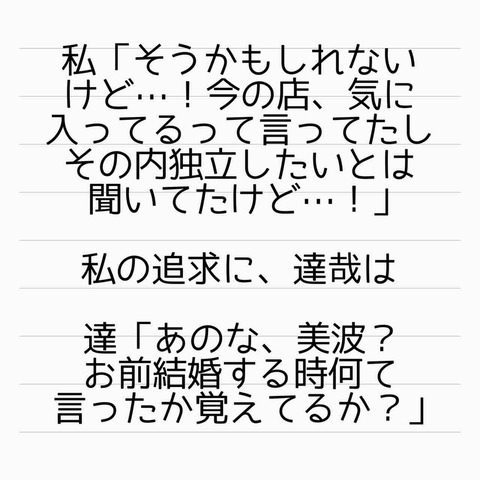 私「そうかもしれない
けど…！今の店、気に
入ってるって言ってたし
その内独立したいとは
聞いてたけど…！」
私の追求に、達哉は
達「あのな、美波？
お前結婚する時何て
言ったか覚えてるか？」